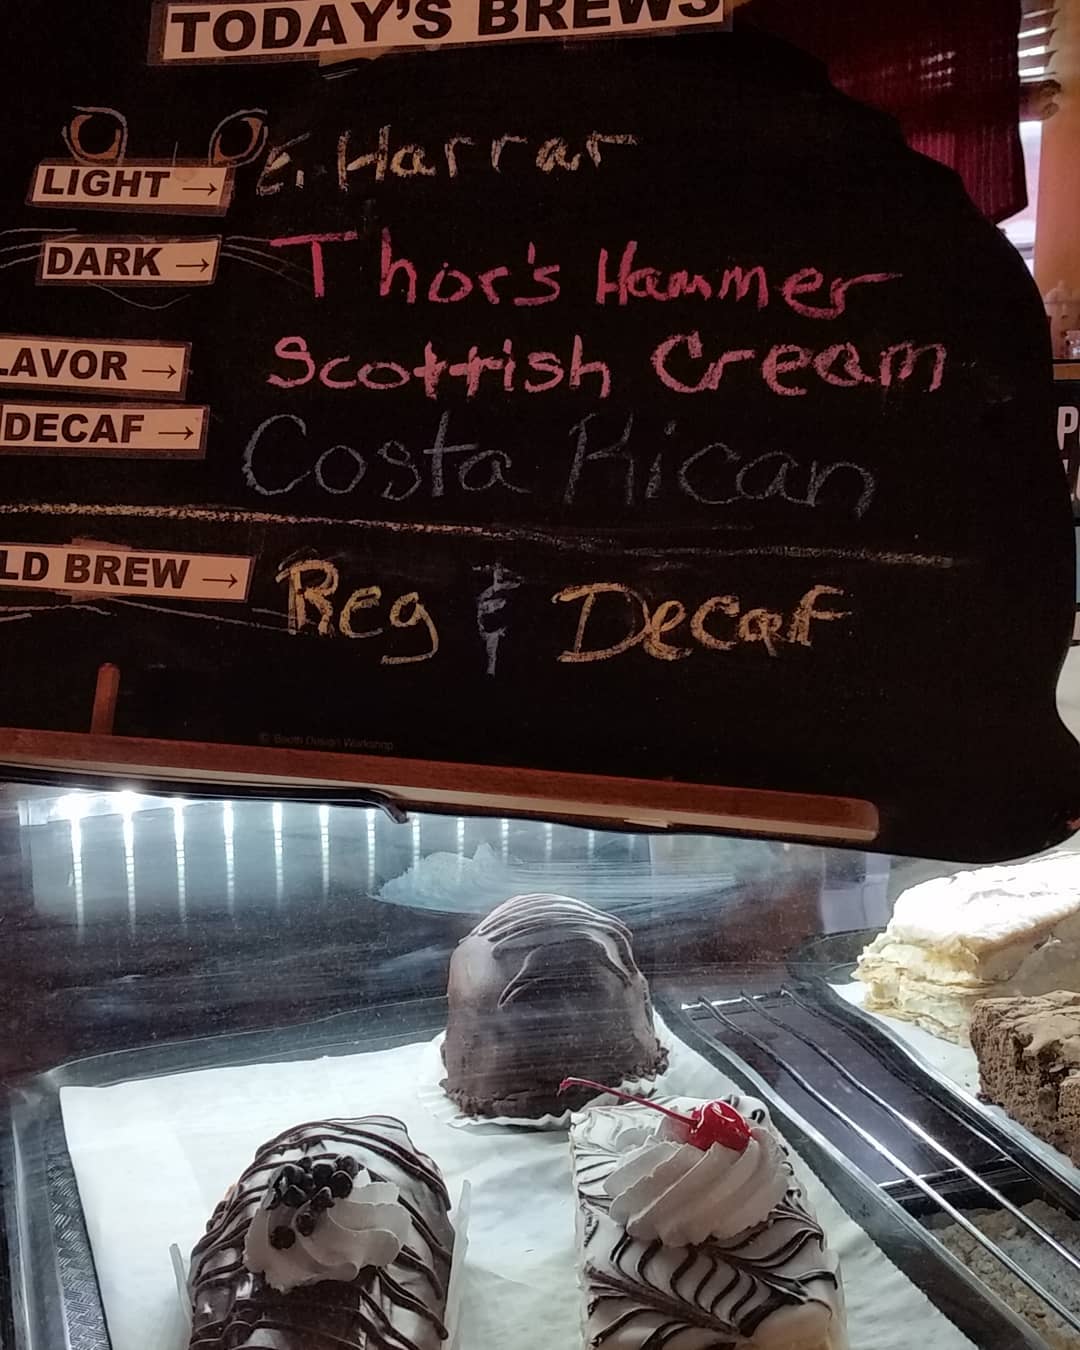 TODAY'S BREWS
LIGHT → E. Harrar
DARK → Thor's Hammer
LAVOR → Scottish Cream
DECAF → Costa Rican
LD BREW → Reg & Decaf
© Booth Design Workshop
P